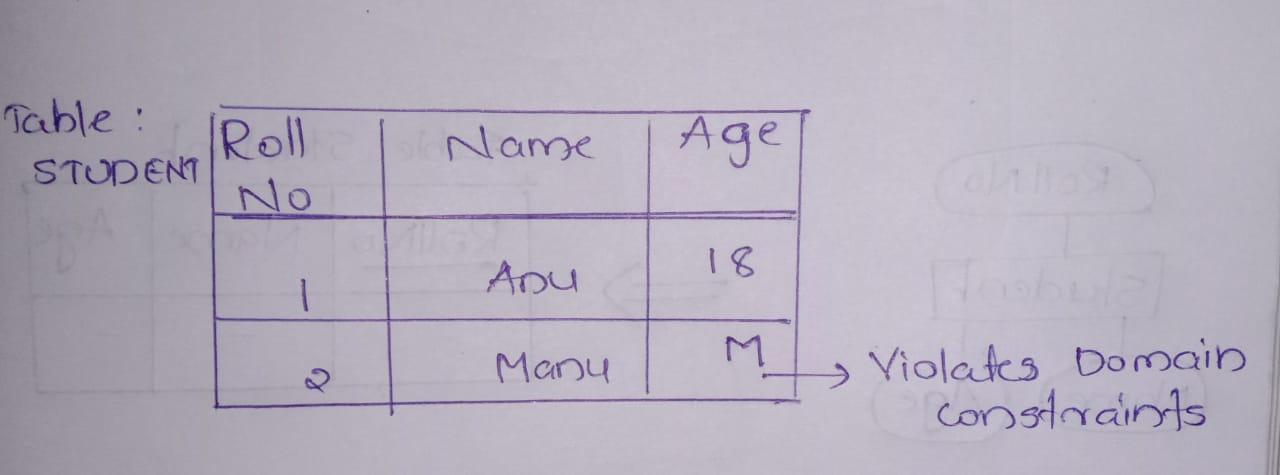 Table :
STUDENT
Roll No Name Age
1 Anu 18
2 Manu M → Violates Domain
constraints